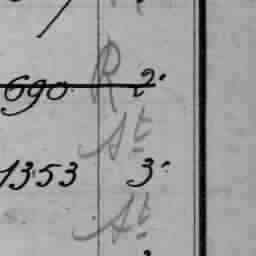 690 R 2.
St
1353 3.
St